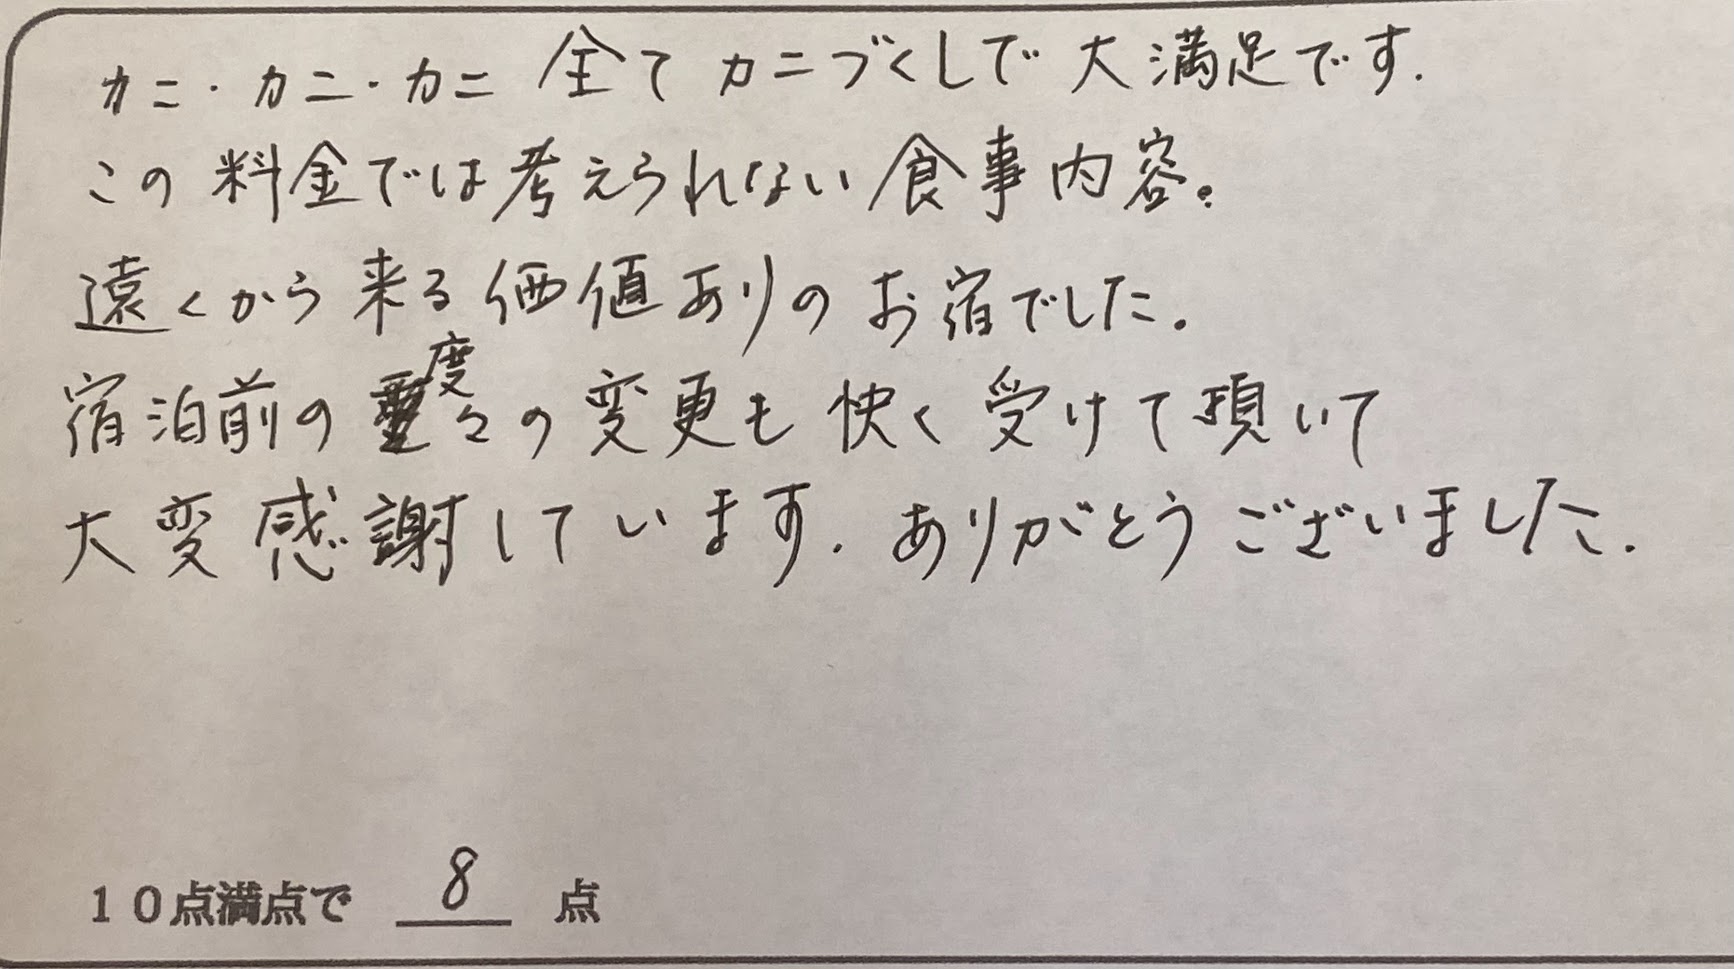 カニ・カニ・カニ 全て カニづくしで 大満足です.
この 料金では考えられない食事内容。
遠くから来る価値ありのお宿でした.
宿泊前の度々の変更も快く受けて頂いて
大変感謝しています. ありがとうございました.
10点満点で 8 点